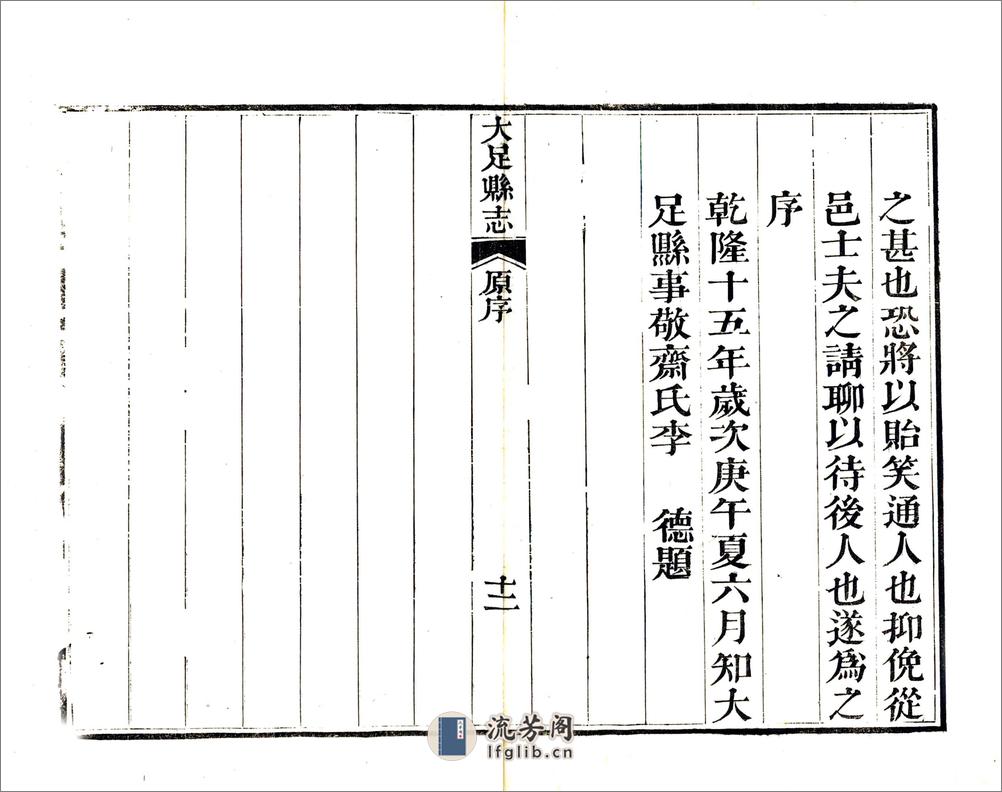 之甚也恐將以貽笑通人也抑俛從
邑士夫之請聊以待後人也遂爲之
序
乾隆十五年歲次庚午夏六月知大
足縣事敬齋氏李　德題
大足縣志
原序
十二
流芳阁
lfglib.cn